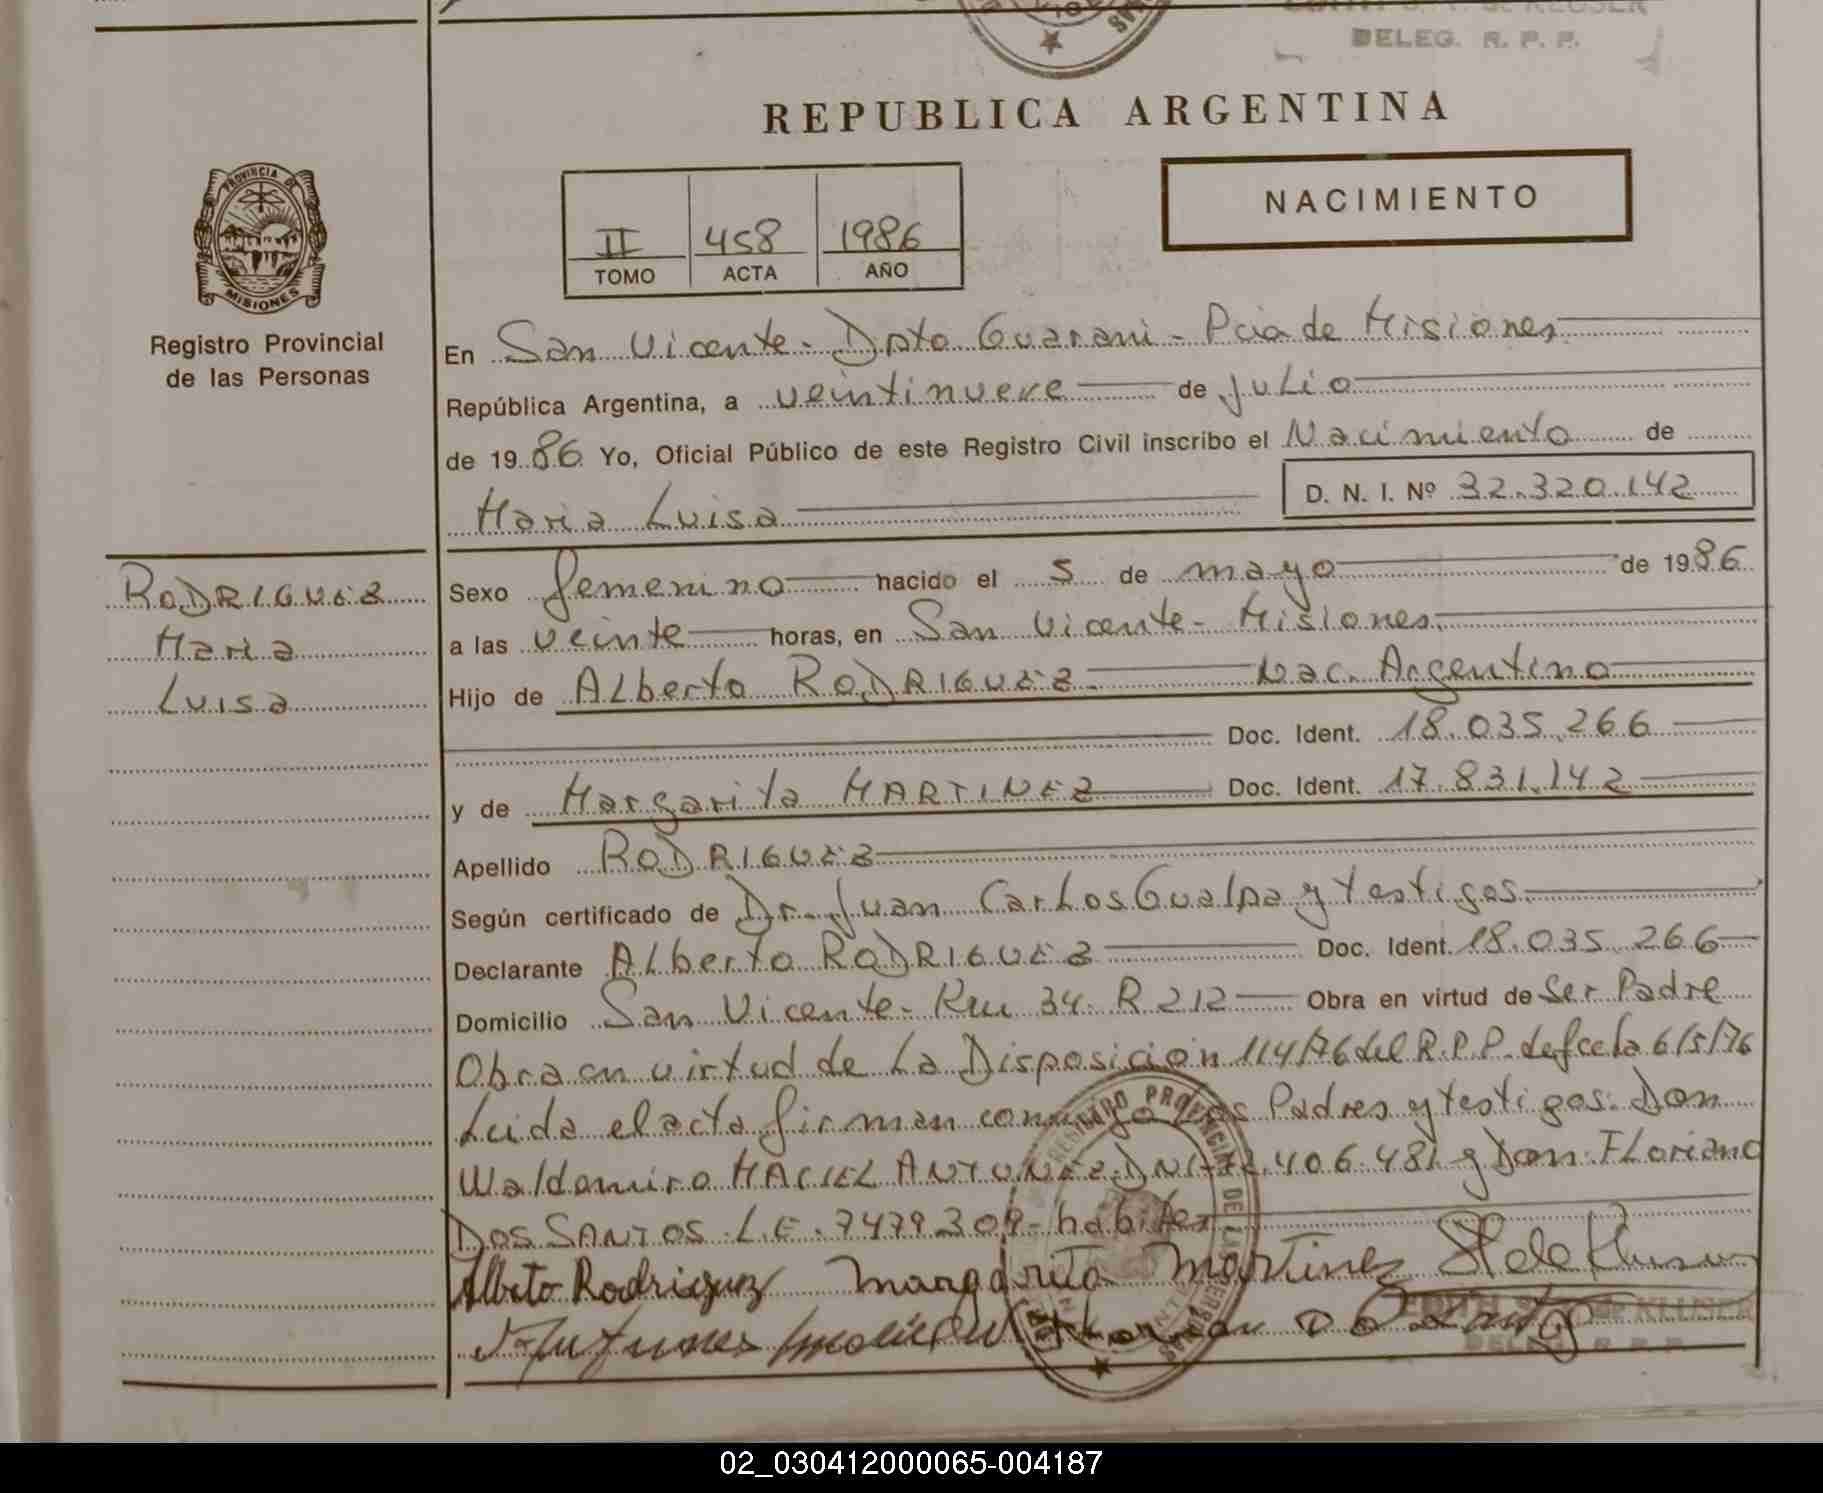 DELEG. R. P. P.
REPUBLICA ARGENTINA
PROVINCIA DE
MISIONES
Registro Provincial
de las Personas
II 458 1986
TOMO ACTA AÑO
NACIMIENTO
En San Vicente - Dpto Guarani - Pcia de Misiones
República Argentina, a veintinueve de Julio
de 1986 Yo, Oficial Público de este Registro Civil inscribo el Nacimiento de
Maria Luisa D. N. I. Nº 32.320.142
RODRIGUEZ
Maria
Luisa
Sexo femenino nacido el 5 de mayo de 1986
a las veinte horas, en San Vicente - Misiones.
Hijo de Alberto RODRIGUEZ - Nac. Argentino
Doc. Ident. 18.035.266
y de Margarita MARTINEZ Doc. Ident. 17.831.142
Apellido RODRIGUEZ
Según certificado de Dr. Juan Carlos Gualpa y testigos.
Declarante Alberto RODRIGUEZ Doc. Ident. 18.035.266
Domicilio San Vicente - Km 34 - R 212 Obra en virtud de Ser Padre
Obra en virtud de La Disposición 114/76 del R.P.P. de fecha 6/5/76
Leida el acta firman conmigo los Padres y testigos: Don
Waldomiro MACIEL ANTUNEZ - DNI 406.481 y Don: Floriano
DOS SANTOS - L.E. 7479309 - habiles
Alberto Rodriguez Margarita Martinez
EDITH S. de KLUSER
DELEG. R. P. P.
REGISTRO PROVINCIAL DE LAS PERSONAS
02_030412000065-004187